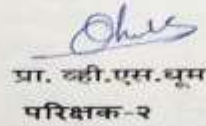 प्रा. व्ही.एस.धूम
परिक्षक-२